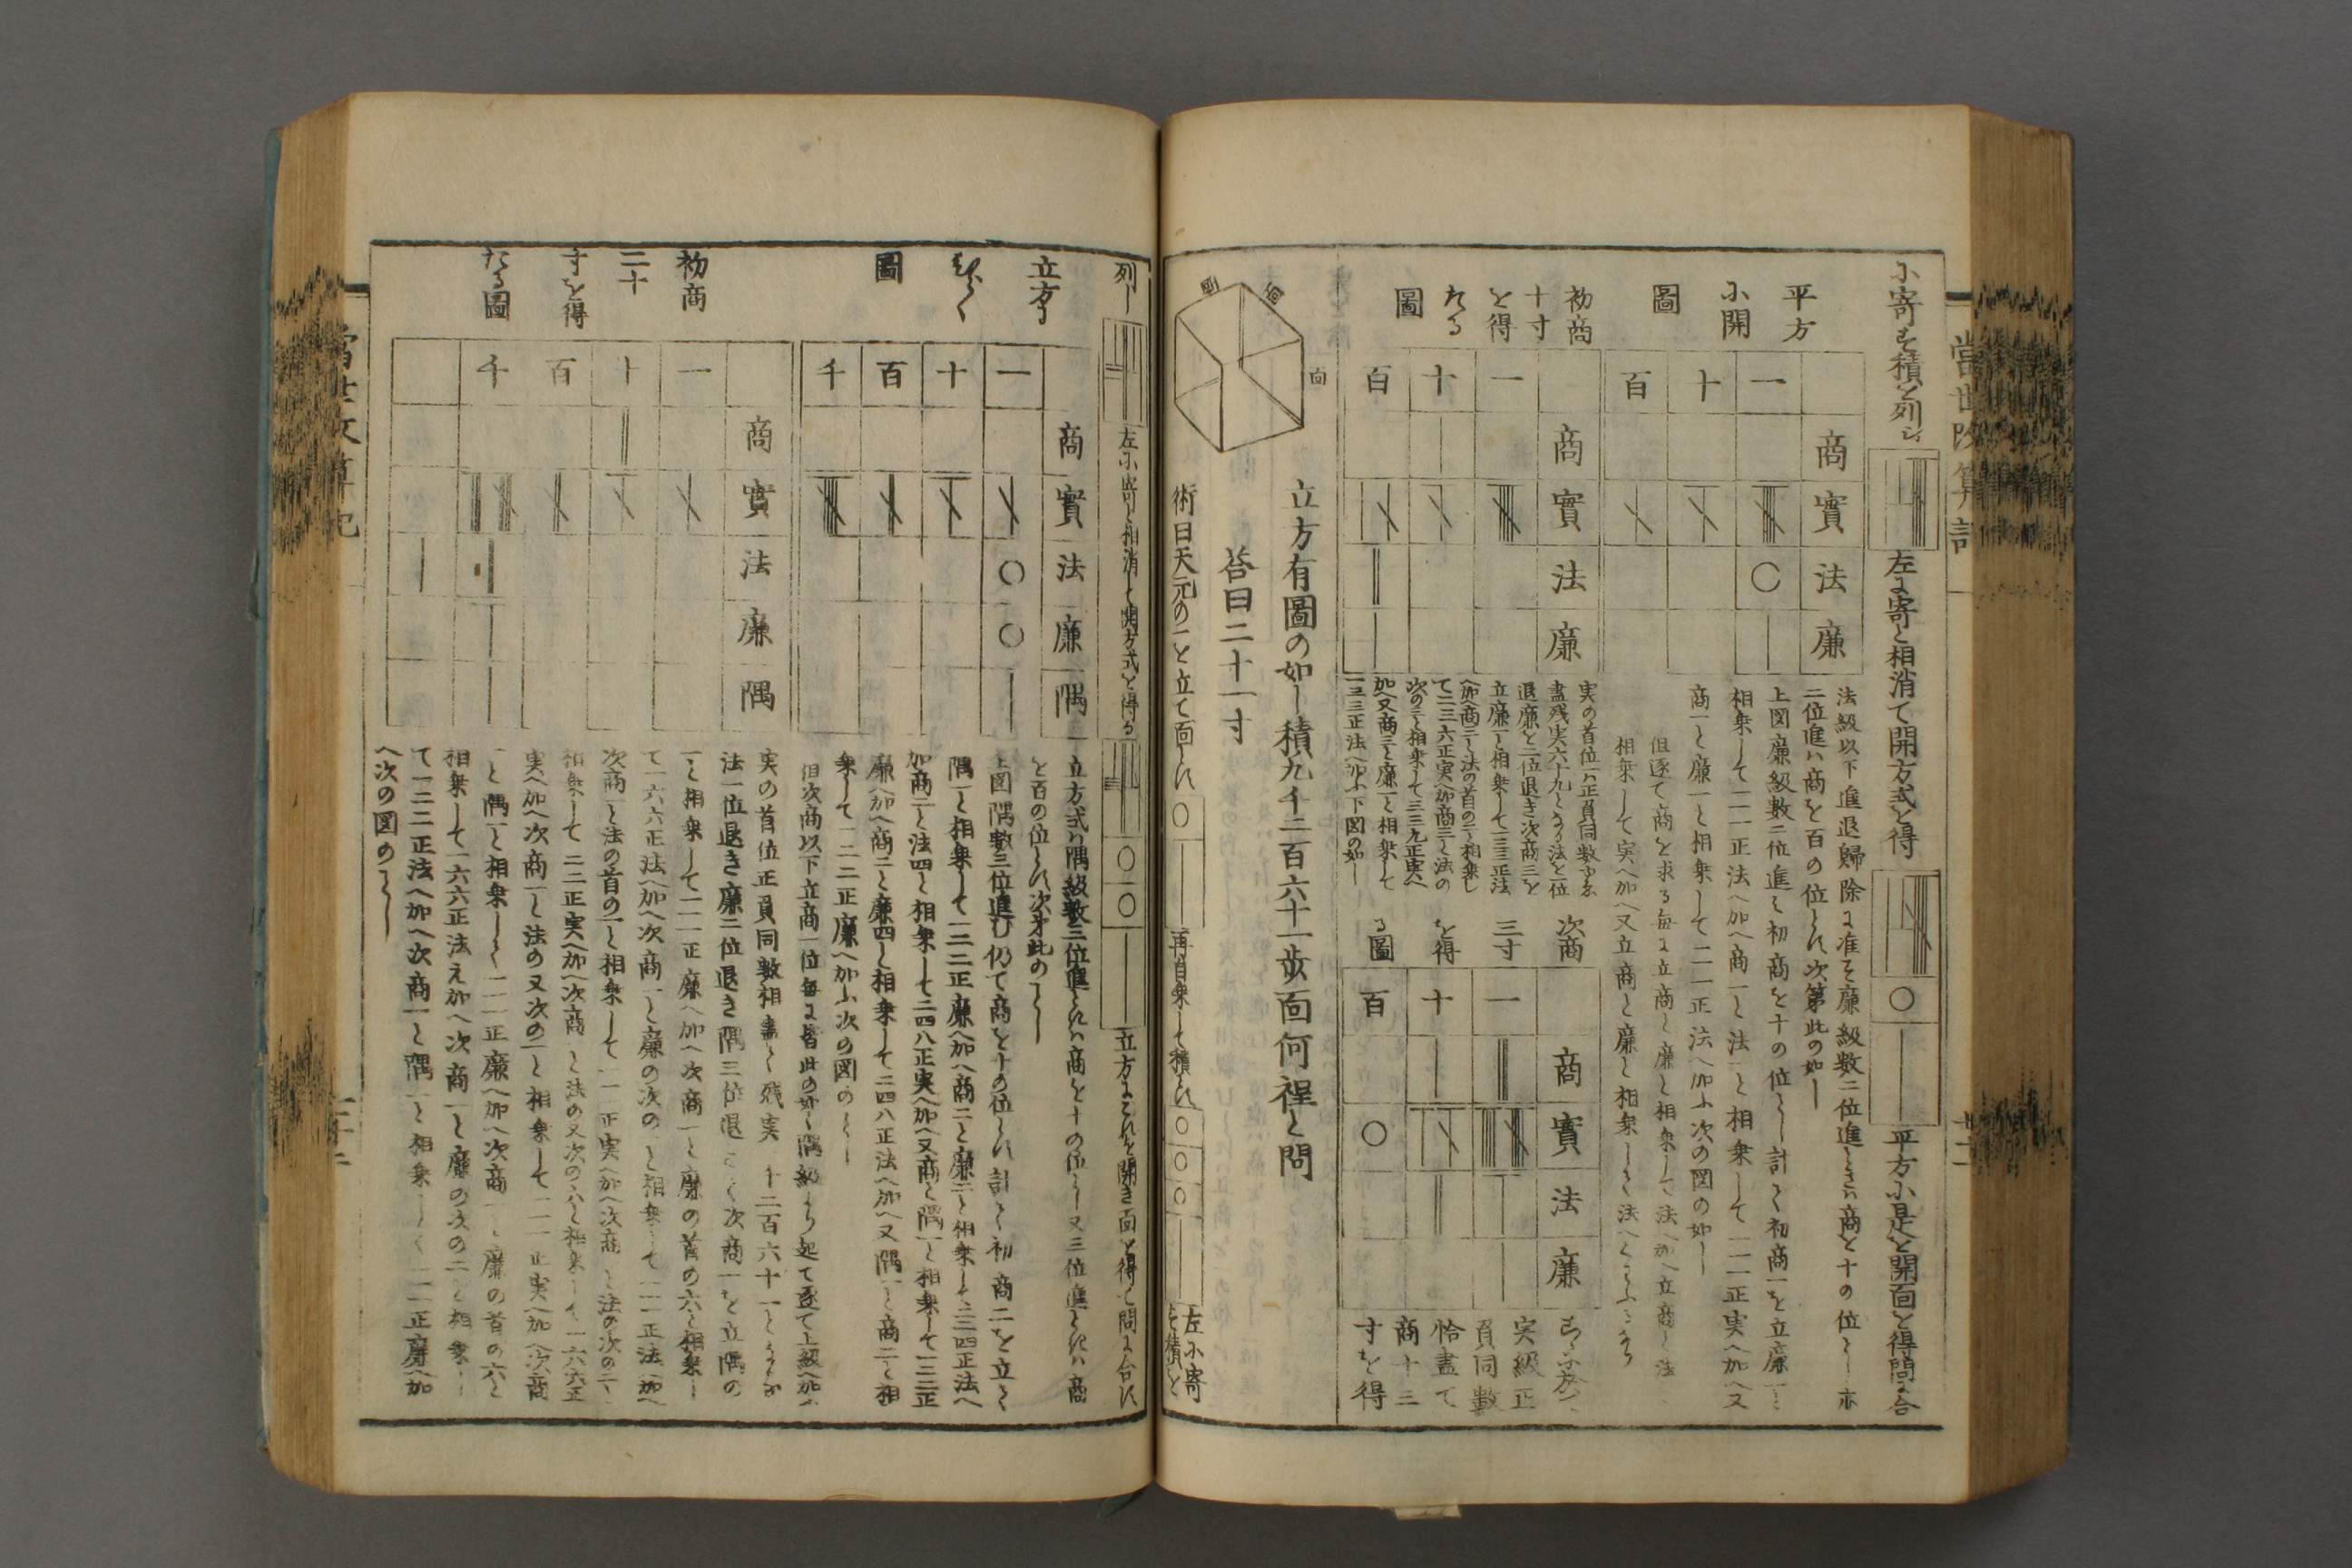 小寄す積を列し
左に寄と相消て開方式を得
平方に是を開面を得問に合
平方
に開
圖
商
實
法
廉
一
十
百
初商
十寸
を得
たる
圖
商
實
法
廉
一
十
百
法級以下進退歸除に准を廉級数二位進ときハ商を十の位とし亦
二位進ハ商を百の位とす次第此の如し
上図廉級数二位進て初商を十の位とし計て初商一を立廉一と
相乗して一一一正法へ加へ商一と法一と相乗して一一一正実へ加へ又
商一と廉一と相乗して一一一正法へ加ふ次の図の如し
但逐て商を求る毎に立商と廉と相乗して法へ加へ立商と法
相乗して実へ加へ又立商と廉と相乗して法へくはふるなり
実の首位一ハ正負同数ゆゑ
盡残実六十九となり法を一位
退廉を二位退き次商三を
立廉一と相乗して一三三正法
へ加へ商三と法の首の二と相乗し
て二三六正実へ加商三と法の
次の三と相乗して三三九正実へ
加へ又商三と廉一と相乗して
一三三正法へ加ふ下図の如し
次商
三寸
を得
る圖
商
實
法
廉
一
十
百
〇
実級正
負同数
恰盡て
商十三
寸を得
面
面
面
立方有圖の如し積九千二百六十一歩面何程と問
荅曰二十一寸
術曰天元の一を立て面とす
〇
再自乗して積とす
〇〇〇
左に寄
を積を
列し
左に寄と相消して開方式を得る
〇〇
立方にこれを開き面を得て問に合す
立方
ひらく
圖
商
實
法
廉
隅
一
十
百
千
〇
〇
初商
二十
寸を得
たる圖
商
實
法
廉
隅
一
十
百
千
立方式ハ隅級数三位進ときハ商を十の位とし又三位進ときハ商
を百の位とす次才此のことし
上図隅数三位進む仍て商を十の位とす計て初商二を立て
隅一と相乗して一二二正廉へ加へ商二と廉二と相乗して二二四正法へ
加商二と法四と相乗して二四八正実へ加へ又商二と隅一と相乗して一二二正
廉へ加へ商二と廉四と相乗して二四八正法へ加へ又隅一と商二と相
乗して一二二正廉へ加ふ次の図のことし
但次商以下立商一位毎に皆此の如く隅級より起て逐て上級へ加ふ
実の首位正負同数相盡て残実一千二百六十一となるゆゑ
法一位退き廉二位退き隅三位退て次商一を立隅の
一と相乗して一一一正廉へ加へ次商一と廉の首の六と相乗し
て一六六正法へ加へ次商一と廉の次の一と相乗して一一一正法へ加へ
次商一と法の首の一と相乗して一一一正実へ加へ次商一と法の次の二と
相乗して一二二正実へ加へ次商一と法の又次の六と相乗して一六六正
実へ加へ次商一と法の又次の一と相乗して一一一正実へ加へ次商
一と隅一と相乗して一一一正廉へ加へ次商一と廉の首の六と
相乗して一六六正法え加へ次商一と廉の次の二と相乗し
て一二二正法へ加へ次商一と隅一と相乗して一一一正廉へ加
へ次の図のことし